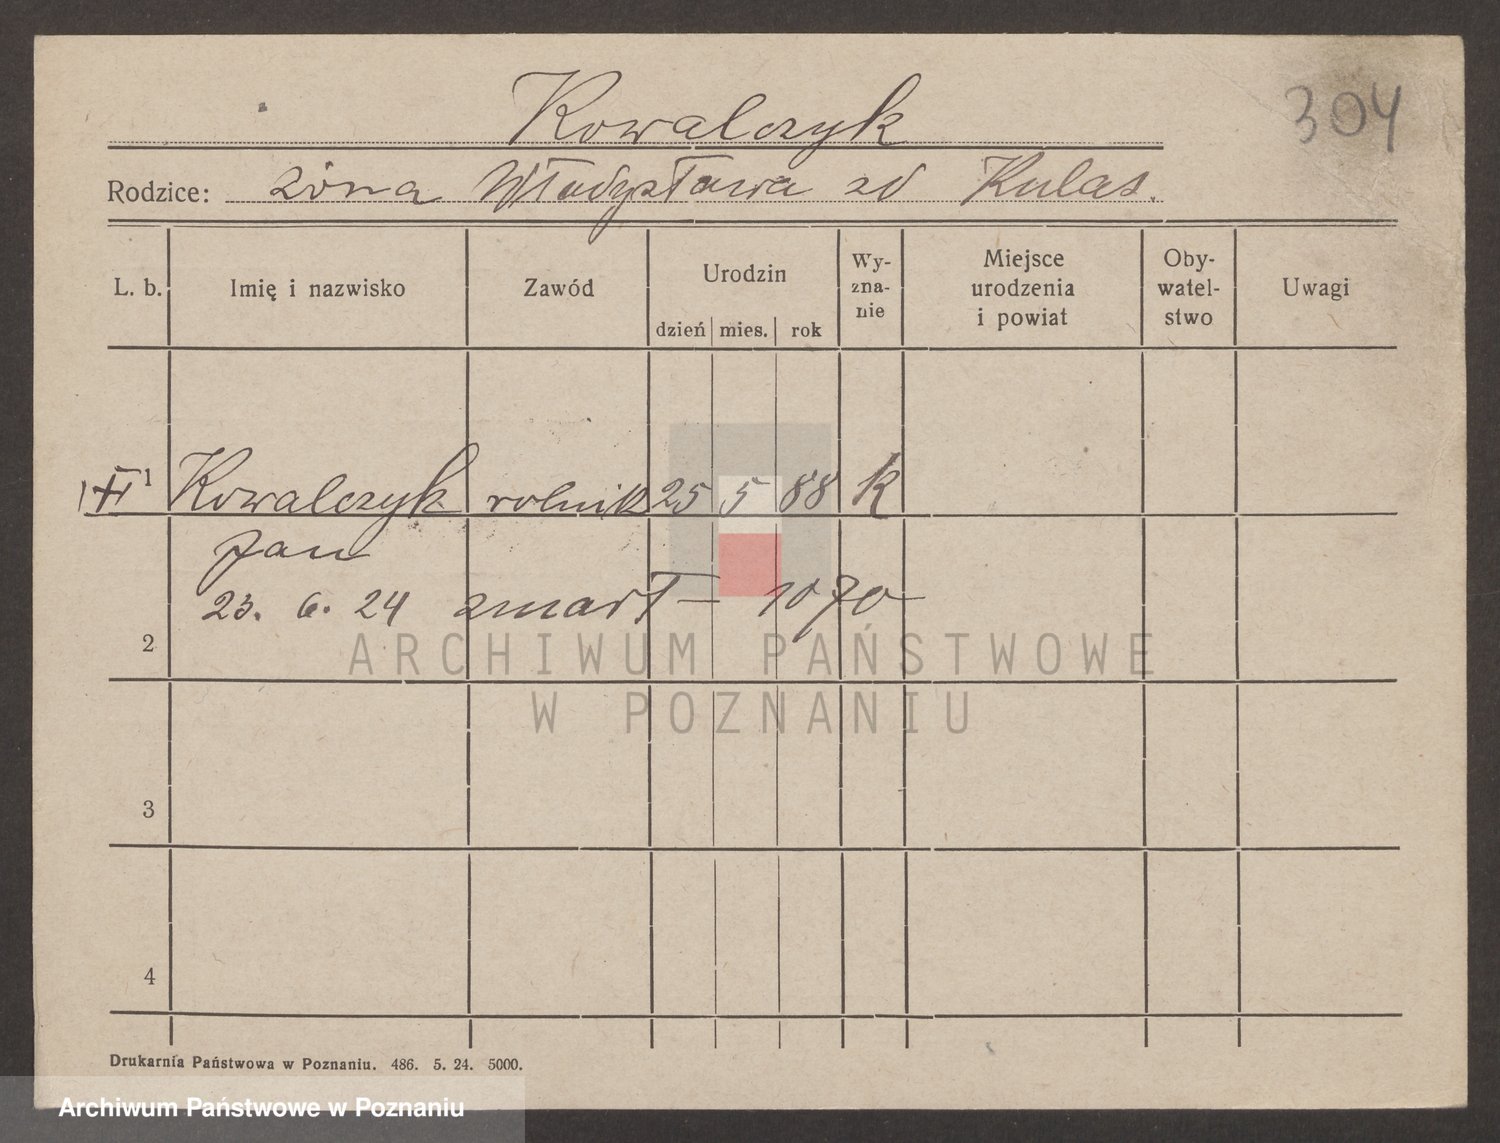 304
Kowalczyk
Rodzice: żona Władysława zd Kulas.
L. b. Imię i nazwisko Zawód Urodzin dzień mies. rok Wy-zna-nie Miejsce urodzenia i powiat Oby-watel-stwo Uwagi
1 Kowalczyk rolnik 25 5 88 k
Jan
23. 6. 24 zmarł –
2
3
4
Drukarnia Państwowa w Poznaniu. 486. 5. 24. 5000.
ARCHIWUM PAŃSTWOWE
W POZNANIU
Archiwum Państwowe w Poznaniu